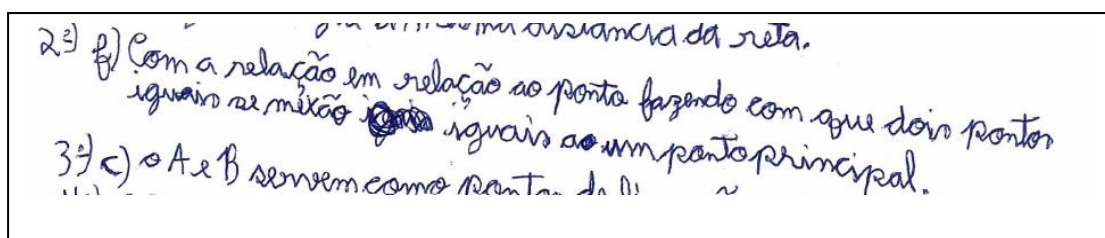 distância da reta.
2ª) f) Com a relação em relação ao ponto fazendo com que dois pontos
iguais se mixão iguais ao um ponto principal.
3ª) c) o A e B servem como